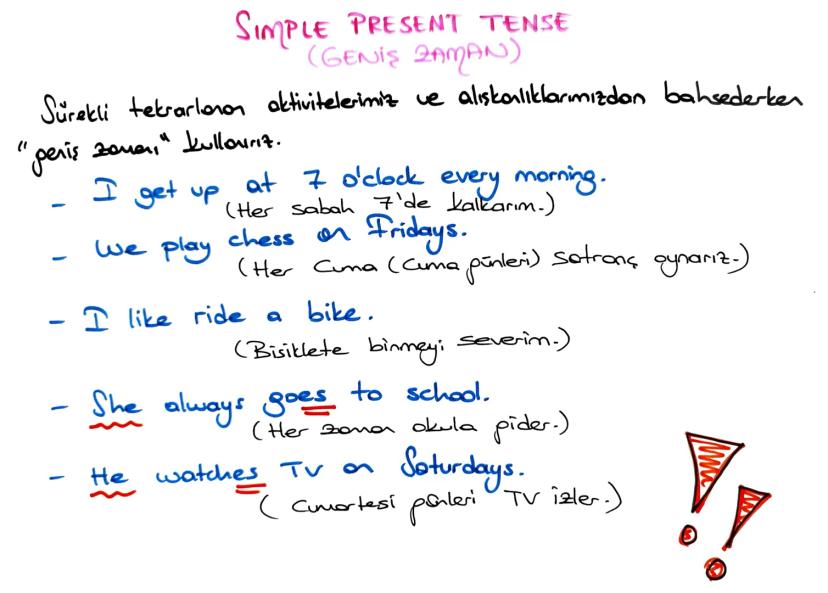 SIMPLE PRESENT TENSE
(GENİŞ ZAMAN)
Sürekli tekrarlanan aktivitelerimiz ve alışkanlıklarımızdan bahsederken
"geniş zamanı" kullanırız.
- I get up at 7 o'clock every morning.
(Her sabah 7'de kalkarım.)
- We play chess on Fridays.
(Her Cuma (Cuma günleri) satranç oynarız.)
- I like ride a bike.
(Bisiklete binmeyi severim.)
- She always goes to school.
(Her zaman okula gider.)
- He watches TV on Saturdays.
(Cumartesi günleri TV izler.)